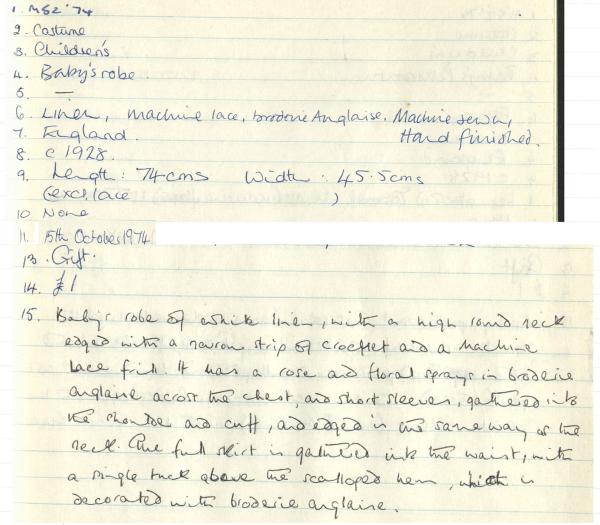 1. M52 '74
2. Costume
3. Children's
4. Baby's robe
5. —
6. Linen, machine lace, broderie Anglaise. Machine sewn,
Hand finished.
7. England.
8. c 1928.
9. Length: 74cms Width: 45.5cms
(excl. lace )
10 None
11. 15th October 1974
13. Gift.
14. £1
15. Baby's robe of white linen, with a high round neck
edged with a narrow strip of crochet and a machine
lace frill. It has a rose and floral sprays in broderie
anglaise across the chest, and short sleeves, gathered into
the shoulder and cuff, and edged in the same way as the
neck. The full skirt is gathered into the waist, with
a single tuck above the scalloped hem, which is
decorated with broderie anglaise.